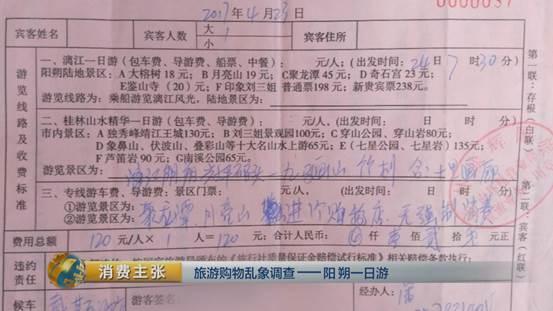 0000037
2017年4月23日
宾客姓名
人数
大
小
1
宾客住所
游览线路及收费标准
一、漓江一日游（包车费、导游费、船票、中餐）： 元/人；（出发时间：24日7时30分）
阳朔陆地景区：A大榕树18元；B月亮山19元；C聚龙潭45元；D奇石宫23元；
E鉴山寺（20）元；F印象刘三姐 普通票198元；新贵宾票238元。
游览线路为：乘船游览漓江风光，陆地景区为：
二、桂林山水精华一日游（包车费、导游费）： 元/人；（出发时间： 日 时 分）
市内景区：A独秀峰靖江王城130元；B刘三姐景观园100元；C穿山公园、穿山岩80元；
D象鼻山、伏波山、叠彩山等十大名山水上游65元；E（七星公园、七星岩）135元；
F芦笛岩90元；G南溪公园65元。
游览景区为：
三、专线游车费、导游费、景区门票： 元/人；（出发时间： 日 时 分）
①游览景区为：聚龙潭 月亮山
②游览景区为：
费用总额
120元/人×1人=120元；合计人民币：
仟壹佰贰拾零元正
违约责任
相关赔偿条款执行。
候车
游客签名：
经办人：
第一联：存根（白联）
第二联：宾客（红联）
消费主张
旅游购物乱象调查——阳朔一日游